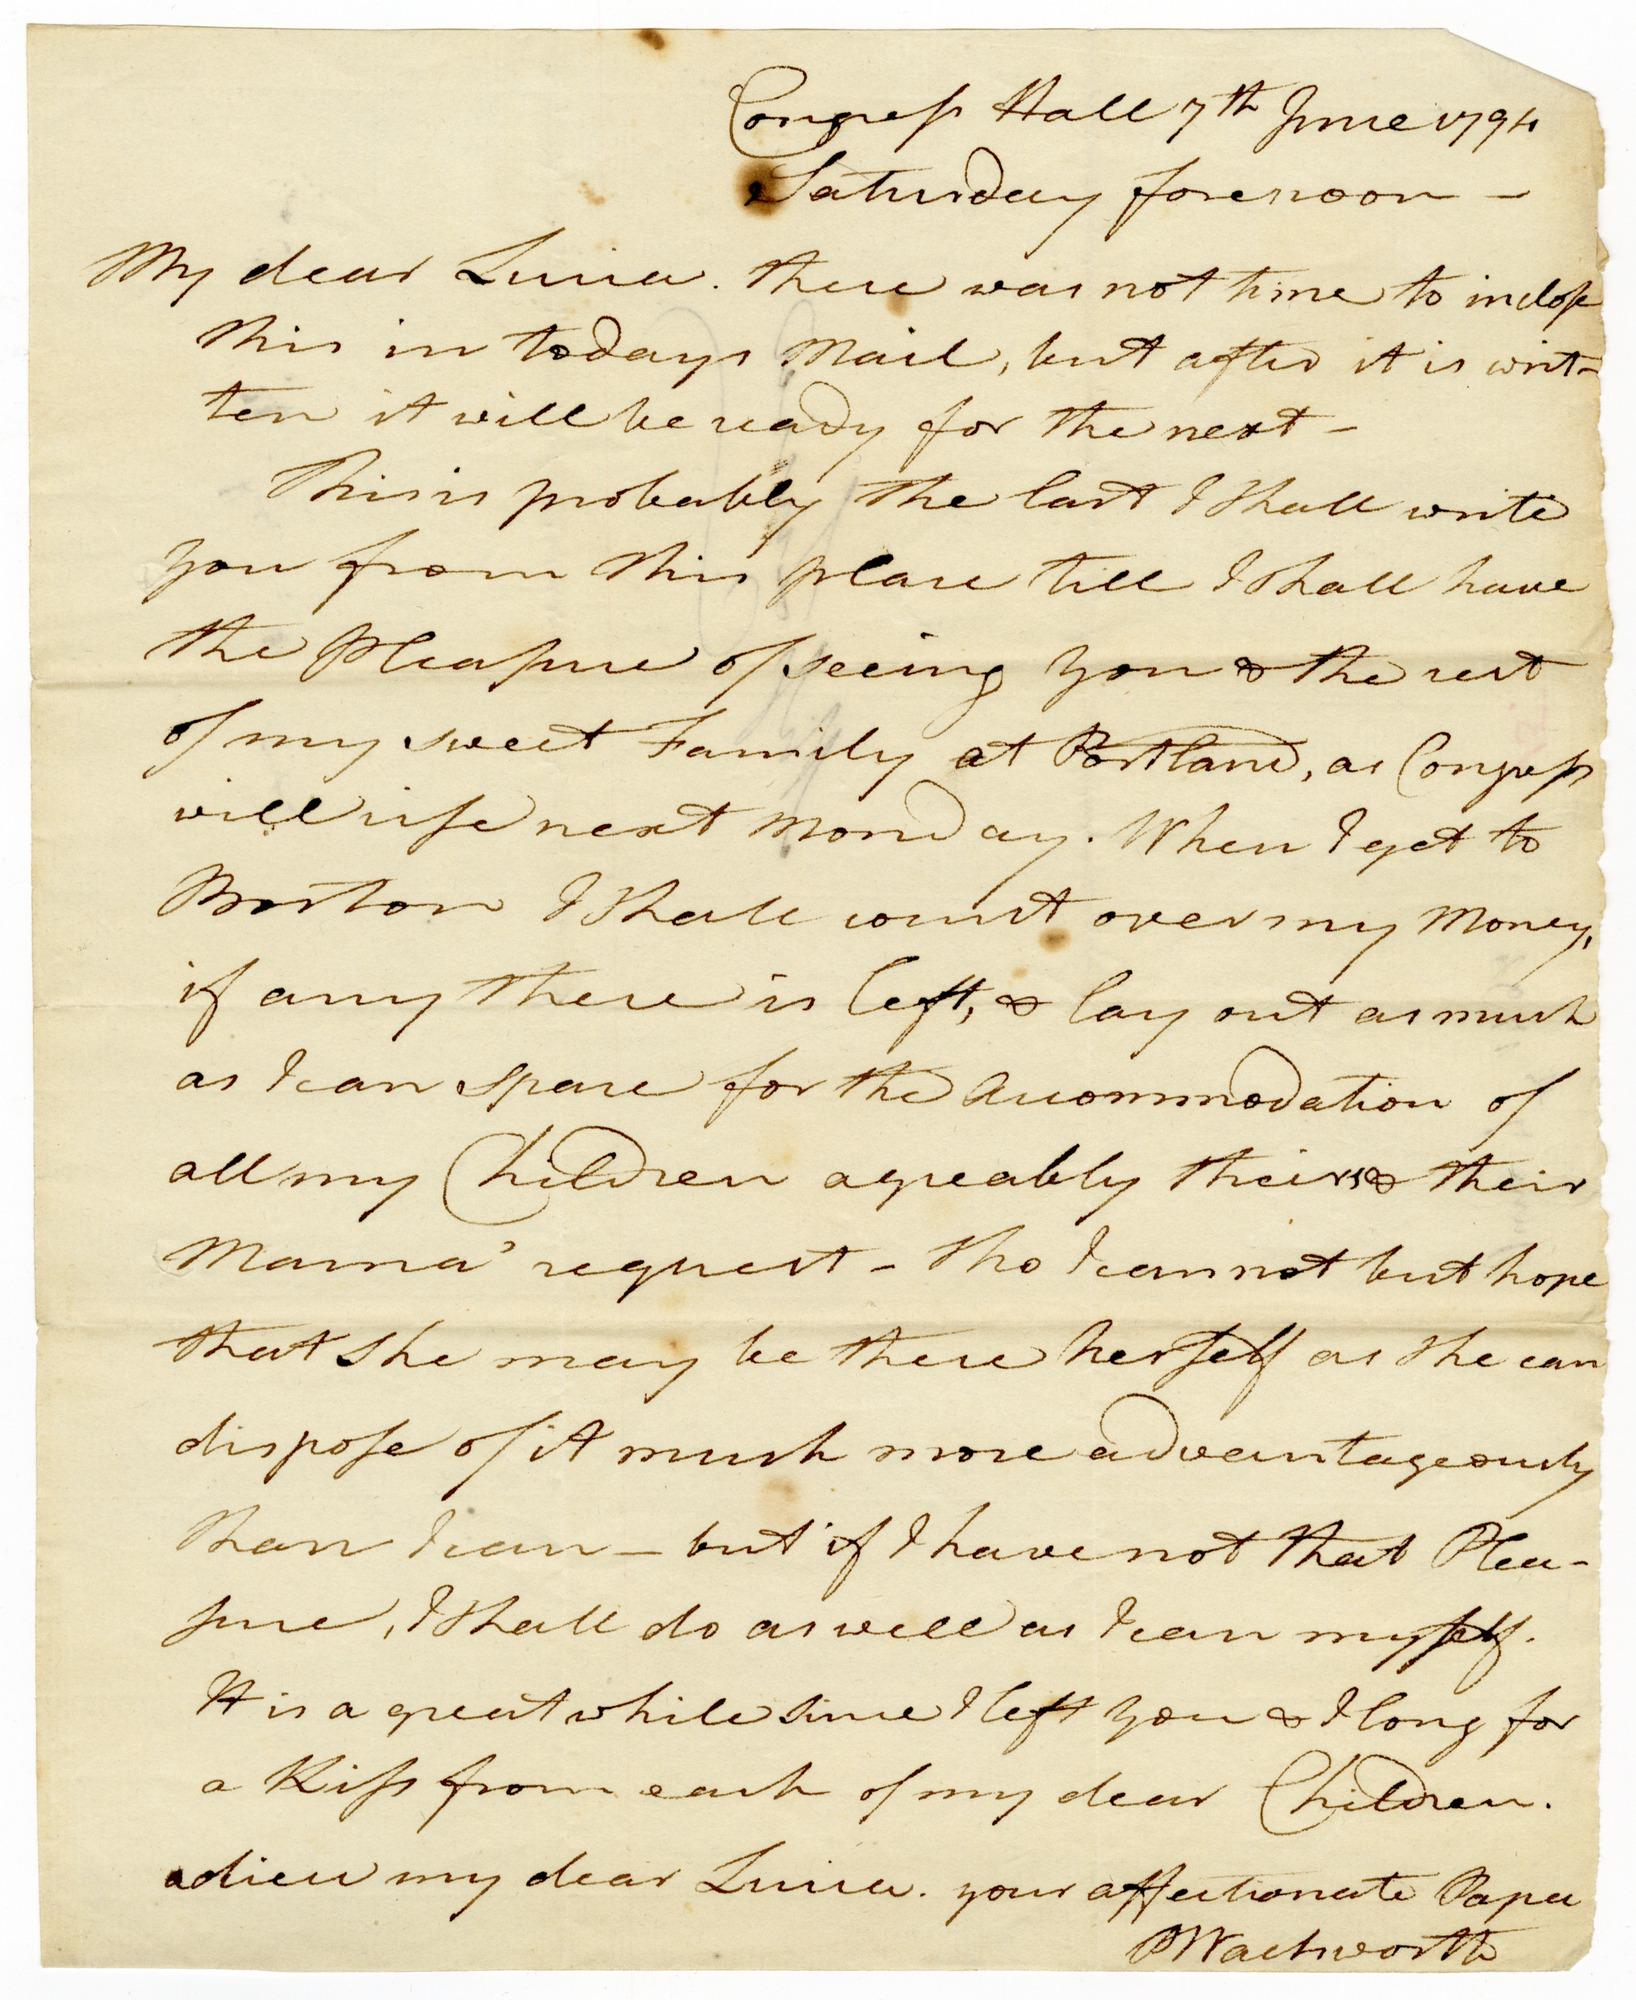 Congress Hall 7th June 1794
Saturday forenoon –
My dear Lucia. there was not time to inclose
this in todays Mail, but after it is writ-
ten it will be ready for the next –
This is probably the last I shall write
you from this place till I shall have
the Pleasure of seeing you & the rest
of my sweet Family at Portland, as Congress
will rise next Monday. When I get to
Boston I shall count over my Money,
if any there is left, & lay out as much
as I can spare for the accommodation of
all my Children agreably theirs & their
Mama' request – tho I cannot but hope
that she may be there herself as she can
dispose of it much more advantageously
than I can – but if I have not that Plea-
sure, I shall do as well as I can myself.
It is a great while since I left you & I long for
a Kiss from each of my dear Children.
adieu my dear Lucia. your affectionate Papa
PWadsworth